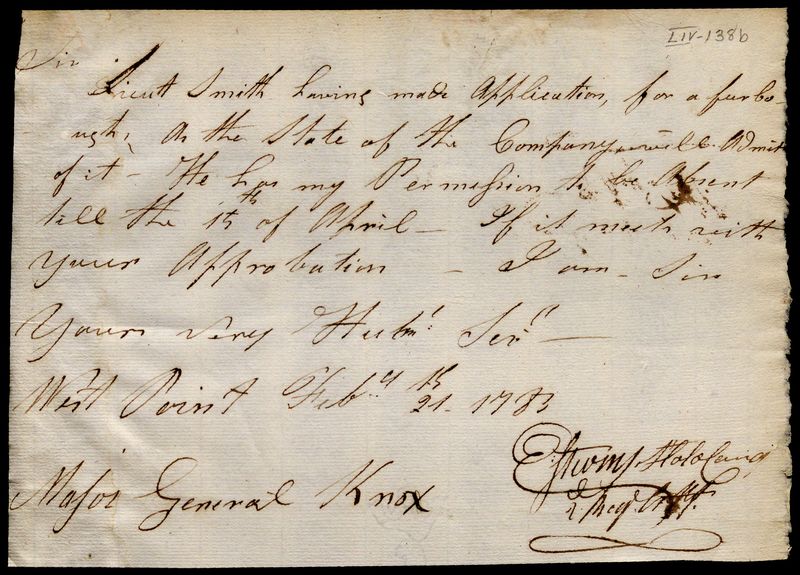 LIV-138b
Sir
Lieutt Smith having made Application, for a furlo-
ugh, As the State of the Company will Admit
of it - He has my Permission to be Absent
till the 15th of April - If it meets with
your Approbation - I am - Sir
Yours Very Hubm! Sert -
West Point Feby 21th 1783
E. Stevens Lt Col Comd
2 Regt Artt
Major General Knox